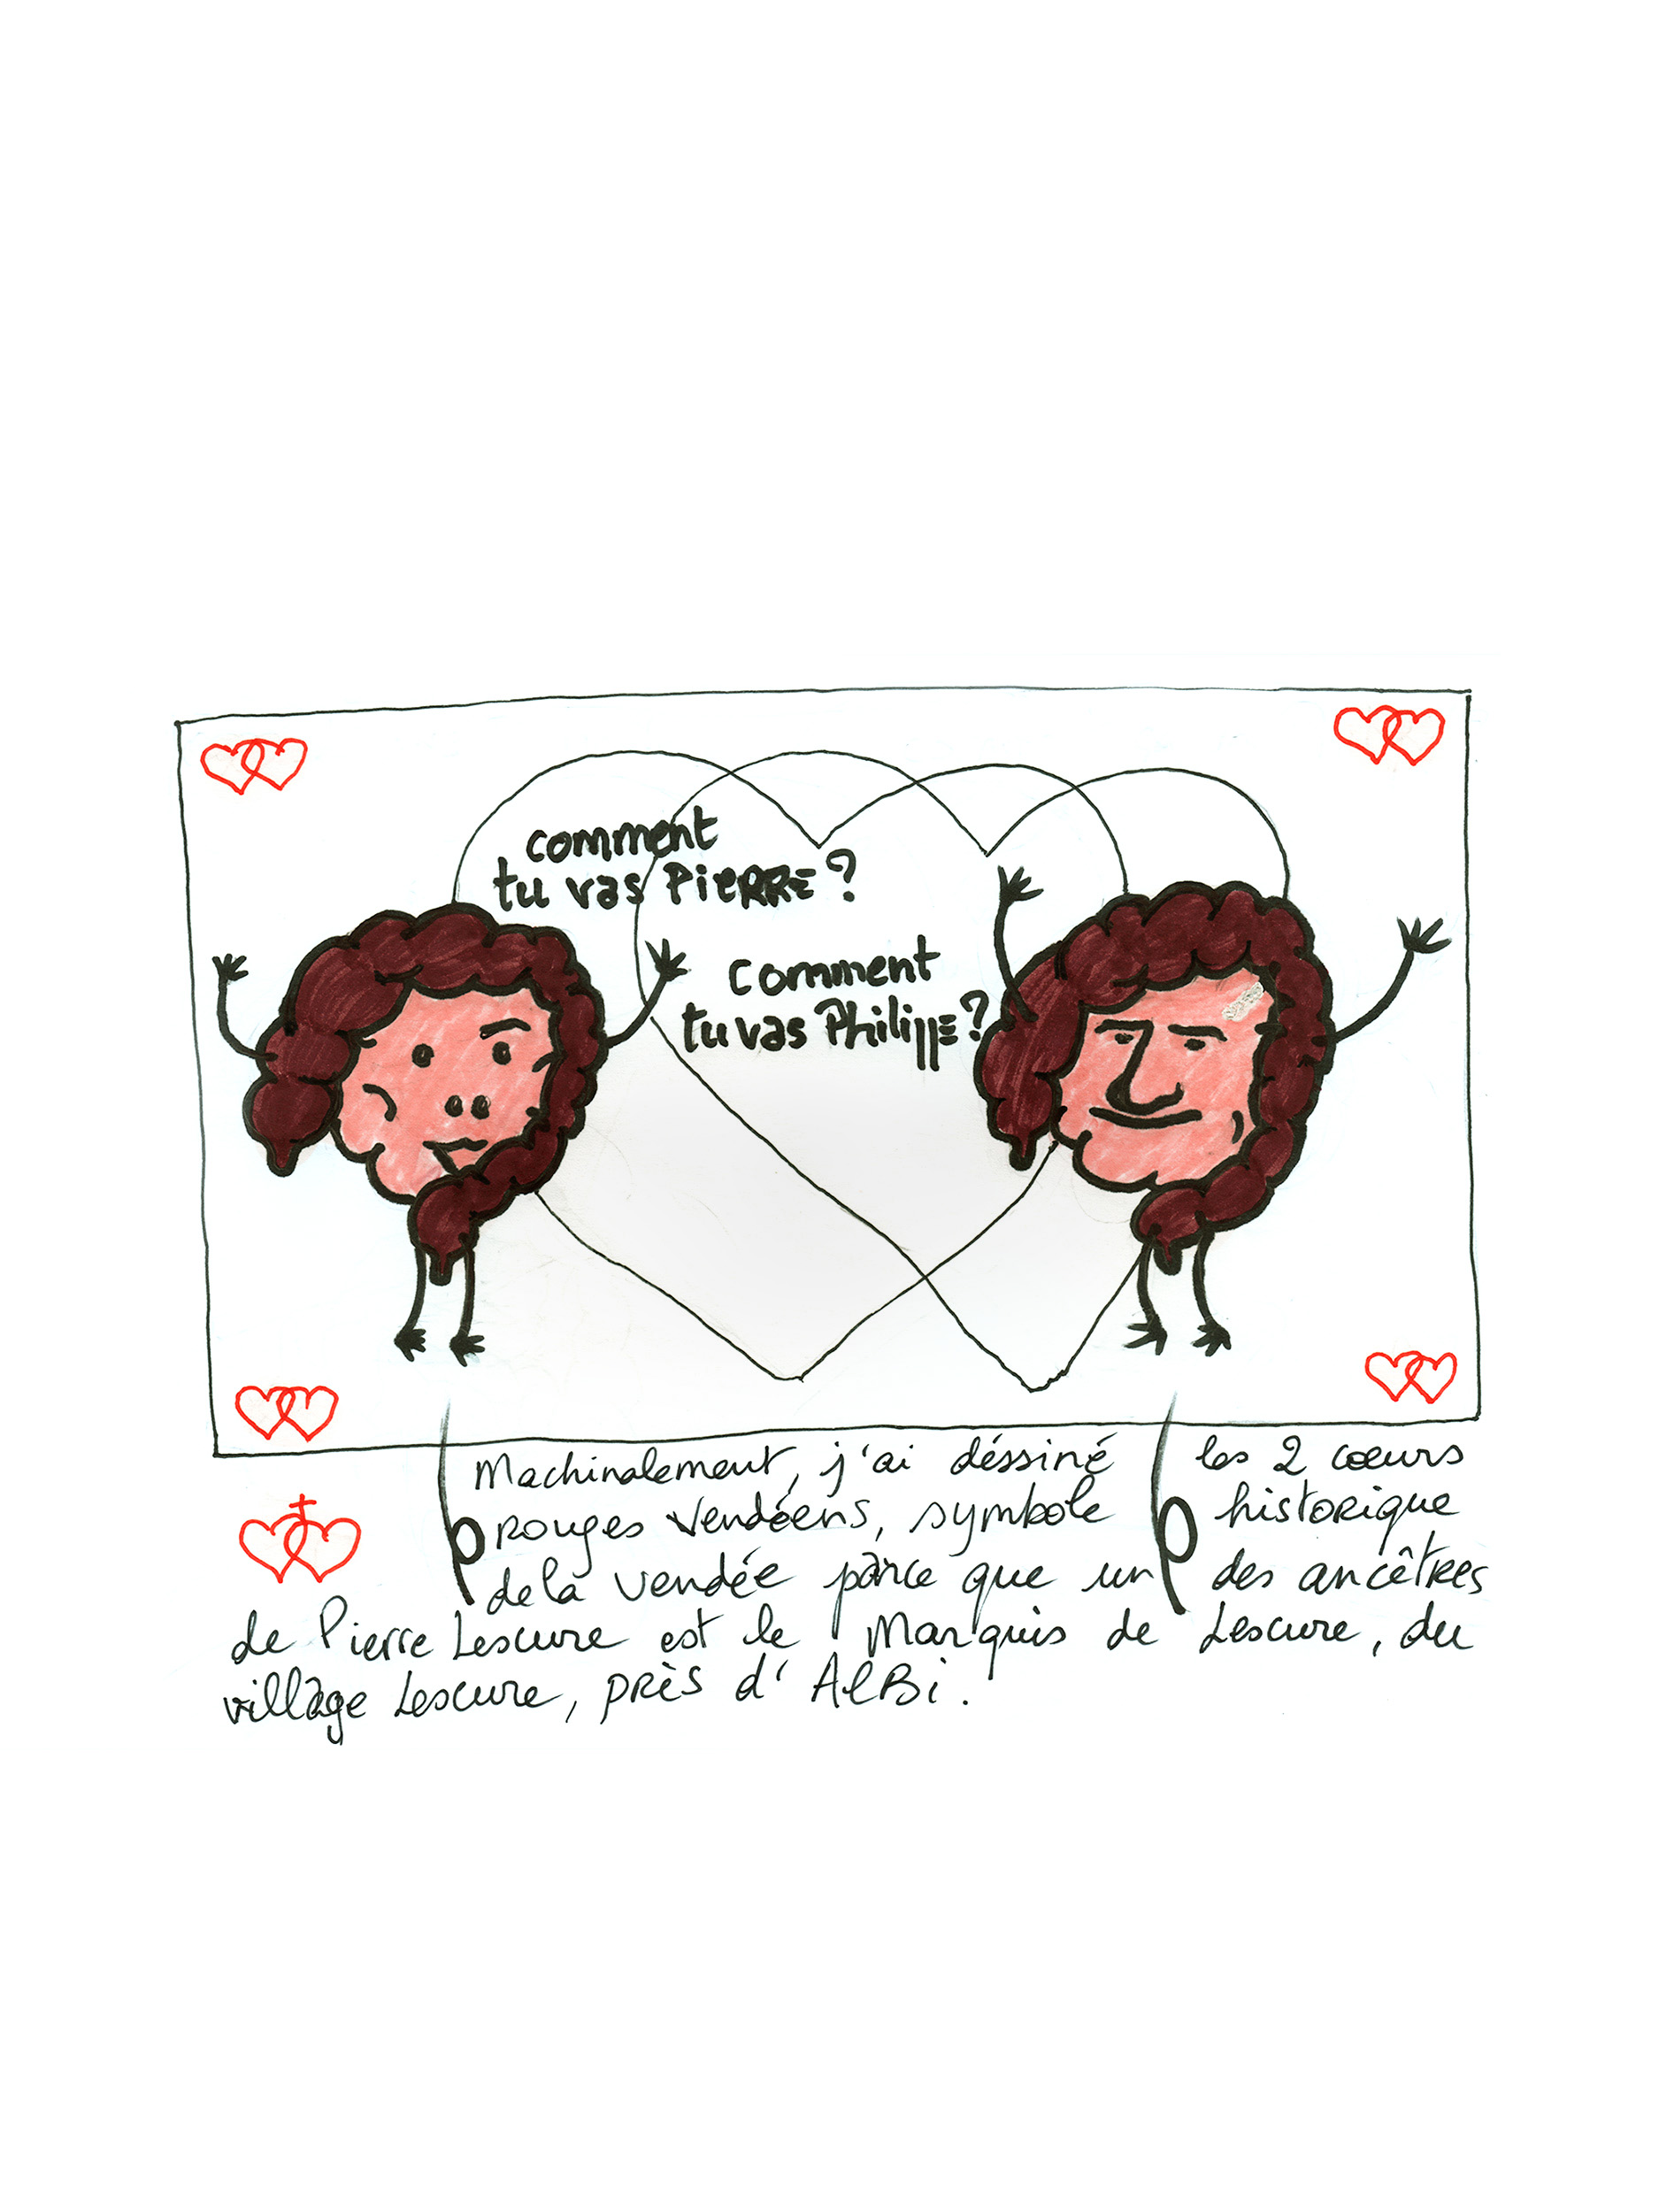 comment
tu vas PieRRE?
comment
tu vas Philippe?
Machinalement, j'ai déssiné les 2 cœurs
rouges vendéens, symbole historique
de la vendée parce que un des ancêtres
de Pierre Lescure est le Marquis de Lescure, du
village Lescure, pRès d'AlBi.